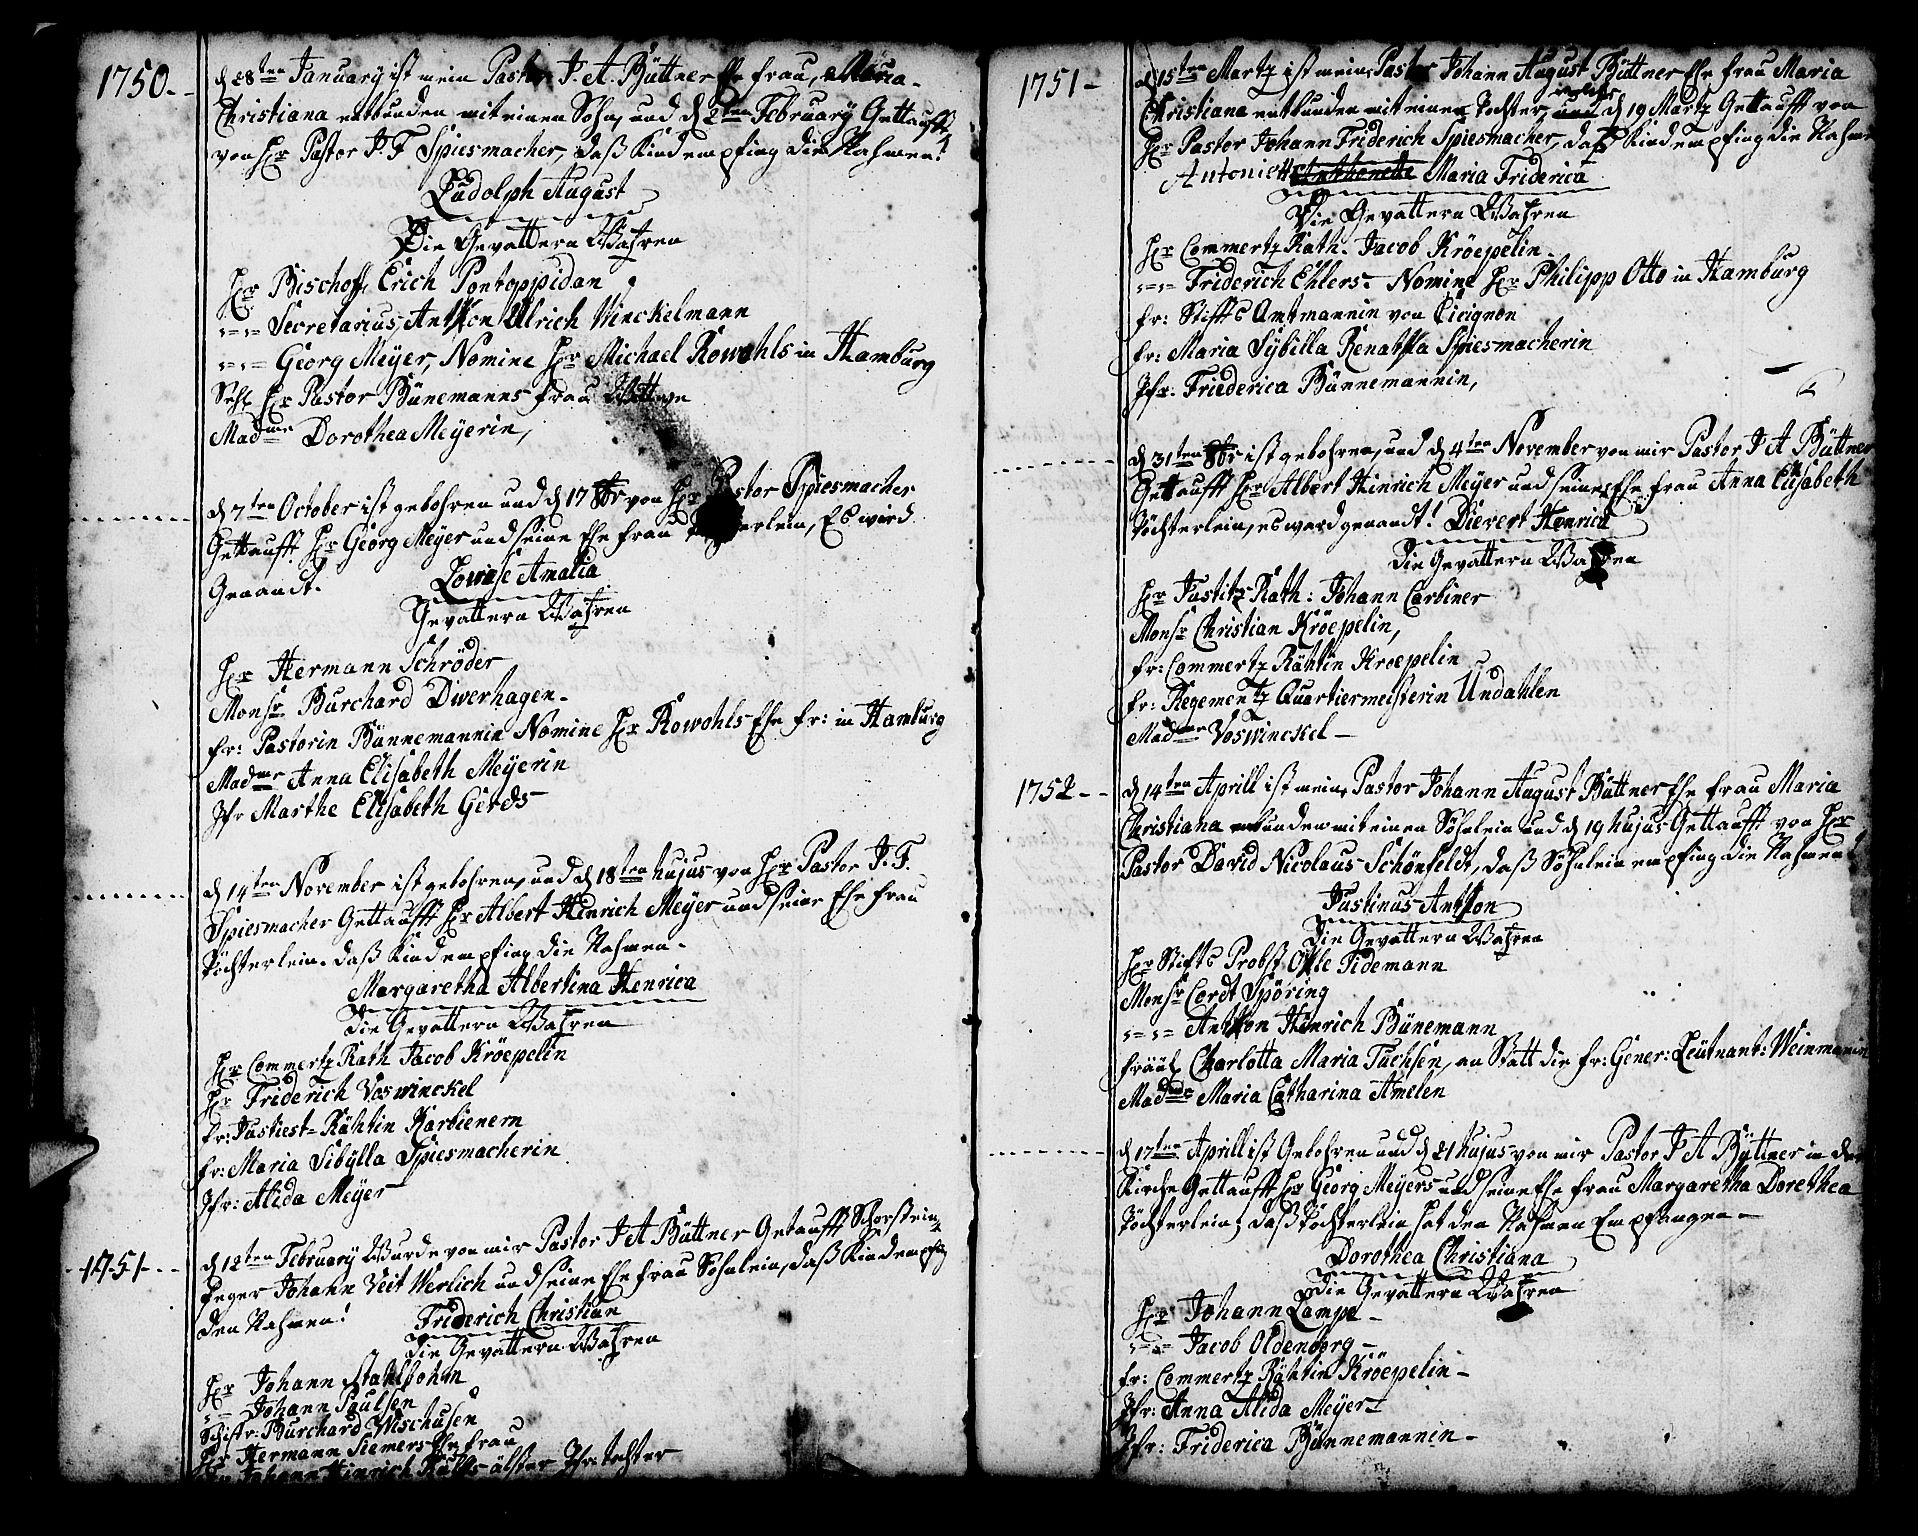 1750.
d 28ten January ist mein Pastor J. A. Büttner Ehe frau, Maria
Christiana entbunden mit einen Sohn, und d 2ten February Gettaufft
von Hr Pastor J F Spiesmacher, daß Kind empfing die Nahmen!
Ludolph August
Die Gevattern Wahren
Hr Bischoff Erich Pontoppidan
"="= Secretarius, Anthon Ulrich Winckelmann
"="= Georg Meyer, Nomine Hr Michael Rowohls in Hamburg
Sehl Hr Pastor Bünemanns frau Wittwe
Madme Dorothea Meyerin,
d 7ten October ist gebohren und d 17 8br von Hr Pastor Spiesmacher
Gettaufft Hr Georg Meyer und seine Ehe frau Töchterlein, Es wird
Genandt. Lowise Amalia
Gevattern Wahren
Hr Hermann Schröder
Monsr Burchard Dwerhagen
fr: Pastorin Bünnemannin Nomine Hr Rowohls Ehe fr: in Hamburg
Madme Anna Elisabeth Meyerin
Jfr Marthe Elisabeth Gerds
d 14ten November ist gebohren, und d 18ten hujus von Hr Pastor J. F.
Spiesmacher Gettaufft Hr Albert Hinrich Meyer und seine Ehe frau
Töchterlein. daß Kind empfing die Nahmen
Margaretha Albertina Henrica
die Gevattern Wahren
Hr Commertz Rath Jacob Kröepelin
Hr Friderich Voswinckel
fr: Justiest=Rähtin Karbienern
fr: Maria Sibylla Spiesmacherin
Jfr: Alida Meyer
1751 d 12ten February Wurde von mir Pastor J A Büttner Getaufft Schorstein=
feger Johann Veit Werlich und seine Ehe frau Sohnlein, daß Kind empfing
den Nahmen! Friderich Christian
die Gevattern Wahren
Hr Johann Stahlbohm
"= Johann Paulsen
Schiffr: Burchard Wischusen
Hr Hermann Siemers Ehe frau
Johann Hinrich älster Jfr: tochter
1751
d 15ten Martz ist mein Pastor Johann August Büttner Ehe frau Maria
Christiana entbunden mit einer Tochter, und d 19 Martz Gettaufft von
Hr Pastor Johann Friderich Spiesmacher, daß Kind empfing die Nahmen
Antonietta Anthonetta Maria Friderica
Die Gevattern Wahren
Hr Commertz Rath: Jacob Kröepelin
"="= Friderich Ehlers Nomine Hr Philipp Otto in Hamburg
fr: Stiffts Amtmannin von Cicignon
fr: Maria Sybilla Renatha Spiesmacherin
Jfr: Friederica Bünnemannin,
d 31ten 8br ist gebohren, und d 4ten November von mir Pastor J A Büttner
Gettaufft Hr Albert Hinrich Meyer und seine Ehe frau Anna Elisabeth
Töchterlein, es ward genandt! Dievert Henrica
die Gevattern Wahren
Hr Justitz Rath: Johann Carbiner
Monsr Christian Kröepelin,
fr: Commertz Rähtin Kroepelin
fr: Regementz Quartiermeisterin Undahlen
Madme Voswinckel
1752 d 14ten Aprill ist mein Pastor Johann August Büttner Ehe frau Maria
Christiana entbunden mit einen Söhnlein und d 19 hujus Gettaufft von Hr
Pastor David Nicolaus Schönfeldt, daß Söhnlein empfing die Nahmen!
Justinus Anthon
die Gevattern Wahren
Hr Stiffts Probst Olle Tidemann
Monsr Cordt Spöring
"="= Anthon Hinrich Bünemann
fräul Charlotta Maria Tuchsen, an Statt die fr: Gener: Leütnant: Weinmannin
Madme Maria Catharina Amelen
d 17ten Aprill ist Gebohren und d 21 hujus von mir Pastor J A Büttner in der
Kirche Gettaufft Hr Georg Meyers und seine Ehe frau Margaretha Dorethea
Töchterlein; daß Töchterlein hat den Nahmen Empfangen
Dorothea Christiana
die Gevattern Wahren
Hr Johann Lampe
"="= Jacob Oldenborg
fr: Commertz Rähtin Kröepelin
Jfr: Anna Alida Meyer
Jfr: Friderica Bünnemannin